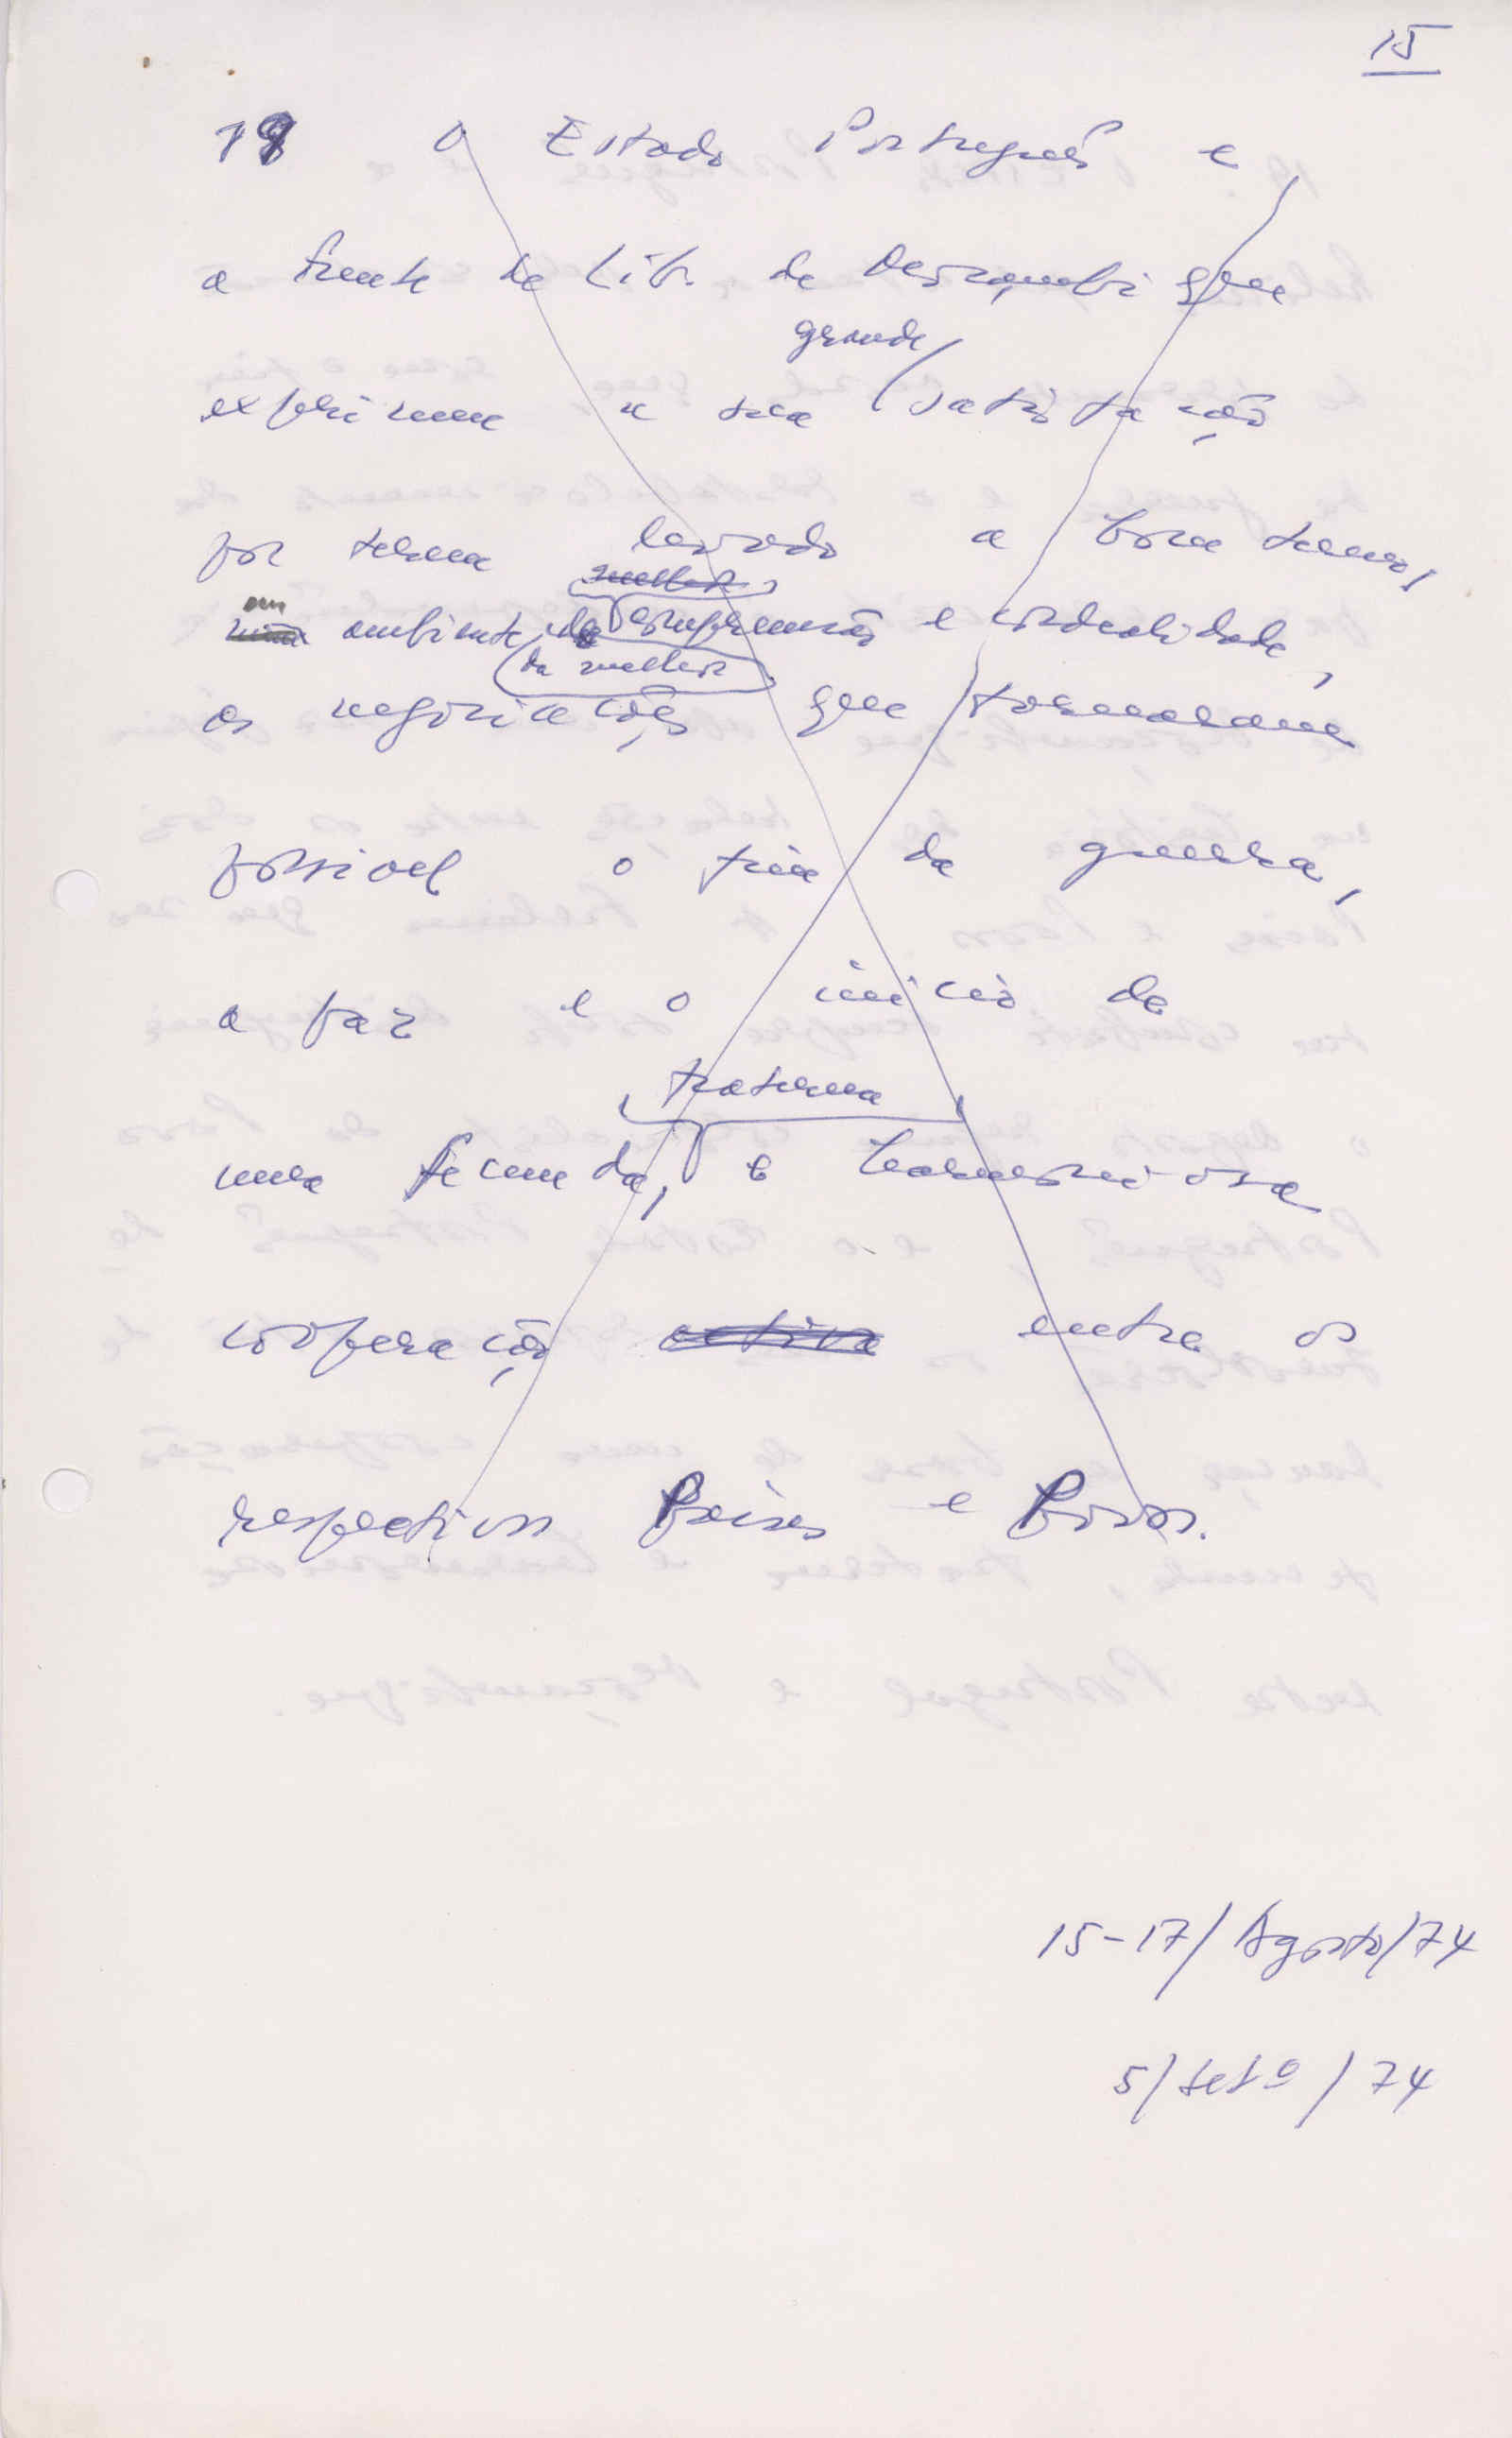 15
18 O Estado Português e
a Frente de Lib. de Moçambique
grande
exprimem a sua satisfação
por terem levado a bom termo,
melhor
em
num ambiente, de compreensão e cordealidade,
da melhor
as negociações que tornaram
possivel o fim da guerra,
a paz e o inicio de
fraterna
uma fecunda, e harmoniosa
cooperação activa entre os
respectivos Paises e Povos.
15-17/Agosto/74
5/Setº/74